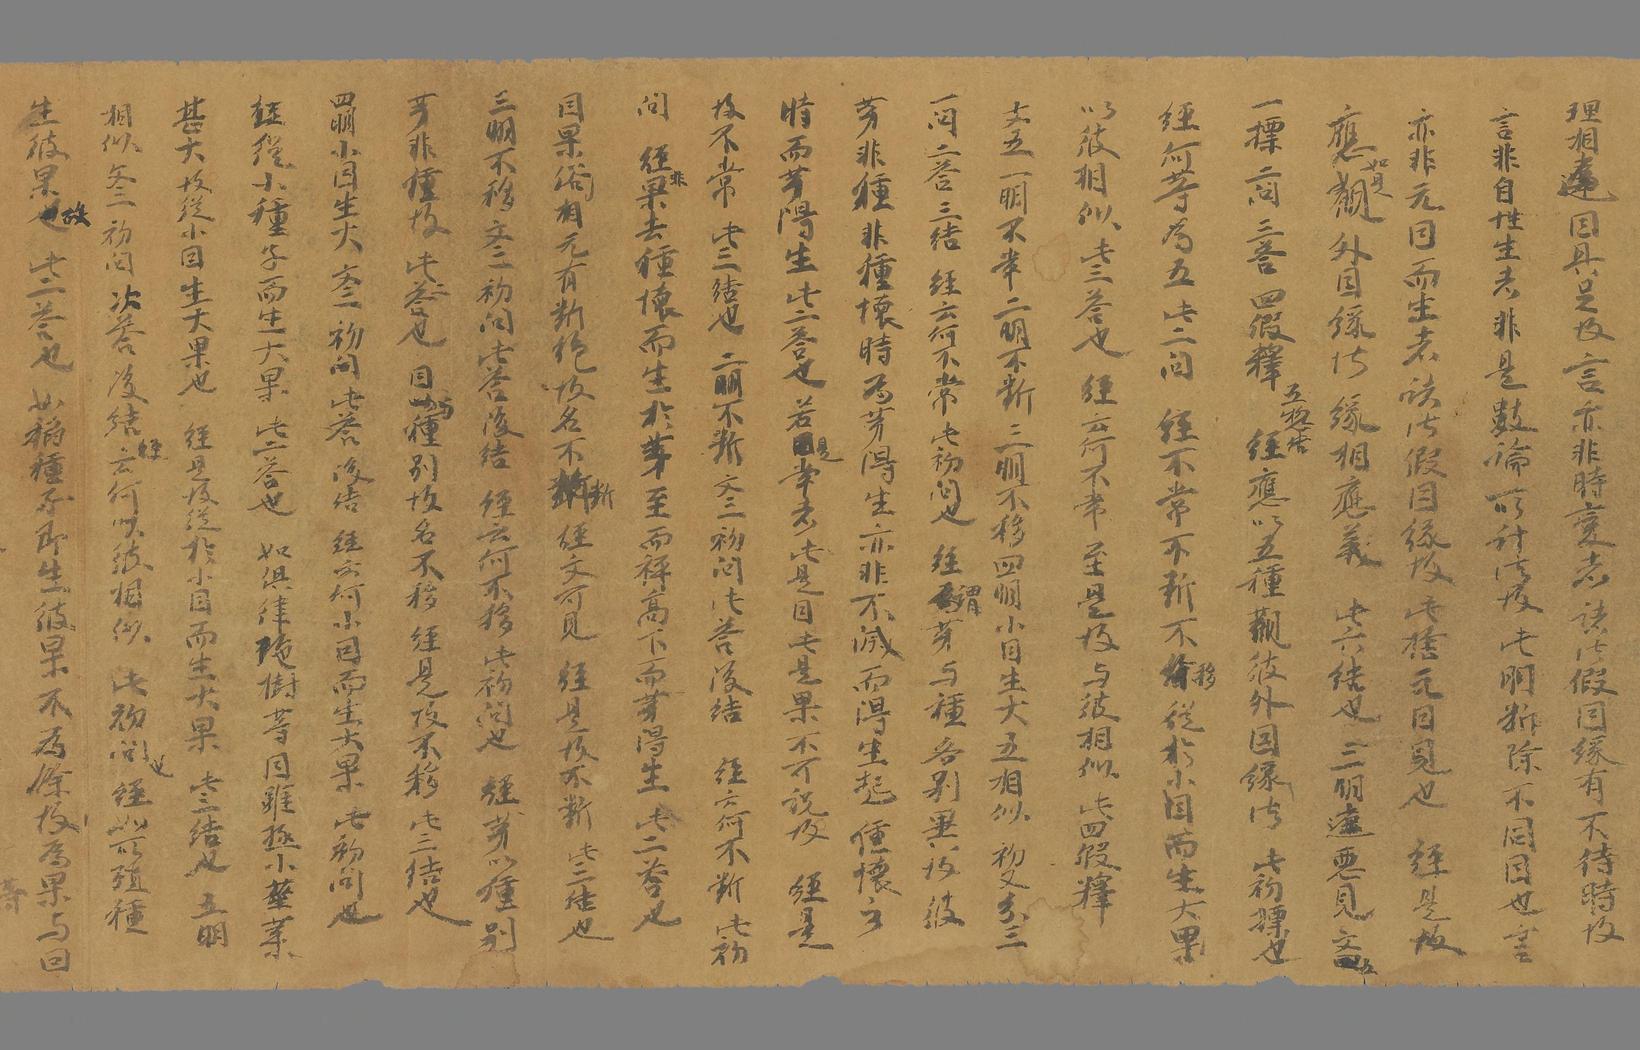 理相違因具足故言亦非時変者諸法假因緣有不待時故
言非自性生者非是數論所計法故此明斯除不同因也害
亦非无因而生者諸法假因緣故此揵无因見也 經是故
應如是觀外因緣法緣相應義 此六結也 三明違惡見文五
一摽二問三答四假釋五惣結 經應以五種觀彼外因緣法 此初摽也
經何等為五此二問 經不常不斷不移從於小因而生大果
以彼相似此三答也 經云何不常至是故与彼相似此四假釋
文五一明不常二明不斷三明不移四明小因生大五相似初文分三
一問二答三結 經云何不常此初問也 經謂芽与種各別異故彼
芽非種非種壞時而芽得生亦非不滅而得生起種壞之
時而芽得生此二答也若是常者此是因此是果不可說故 經是
故不常此三結也二明不斷文三初問次答後結 經云何不斷此初
問 經非果去種壞而生於芽至而稱高下而芽得生此二答也
因果俗相无有斷絶故名不斷經文可見 經是故不斷此三結也
三明不移文三初問次答後結 經云何不移此初問也 經芽以種別
芽非種故此二答也因与種別故名不移經是故不移此三結也
四明小因生大文三初問次答後結經云何小因而生大果此初問也
經從小種子而生大果此二答也 如俱律陁樹等因雖極小華菓
甚大故從小因生大果也 經是故從於小因而生大果此三結也五明
相似文三初問次答後結經云何以彼相似此初問也經如所殖種
生彼果故此二答也如稻種子即生彼果不為餘故為果与因